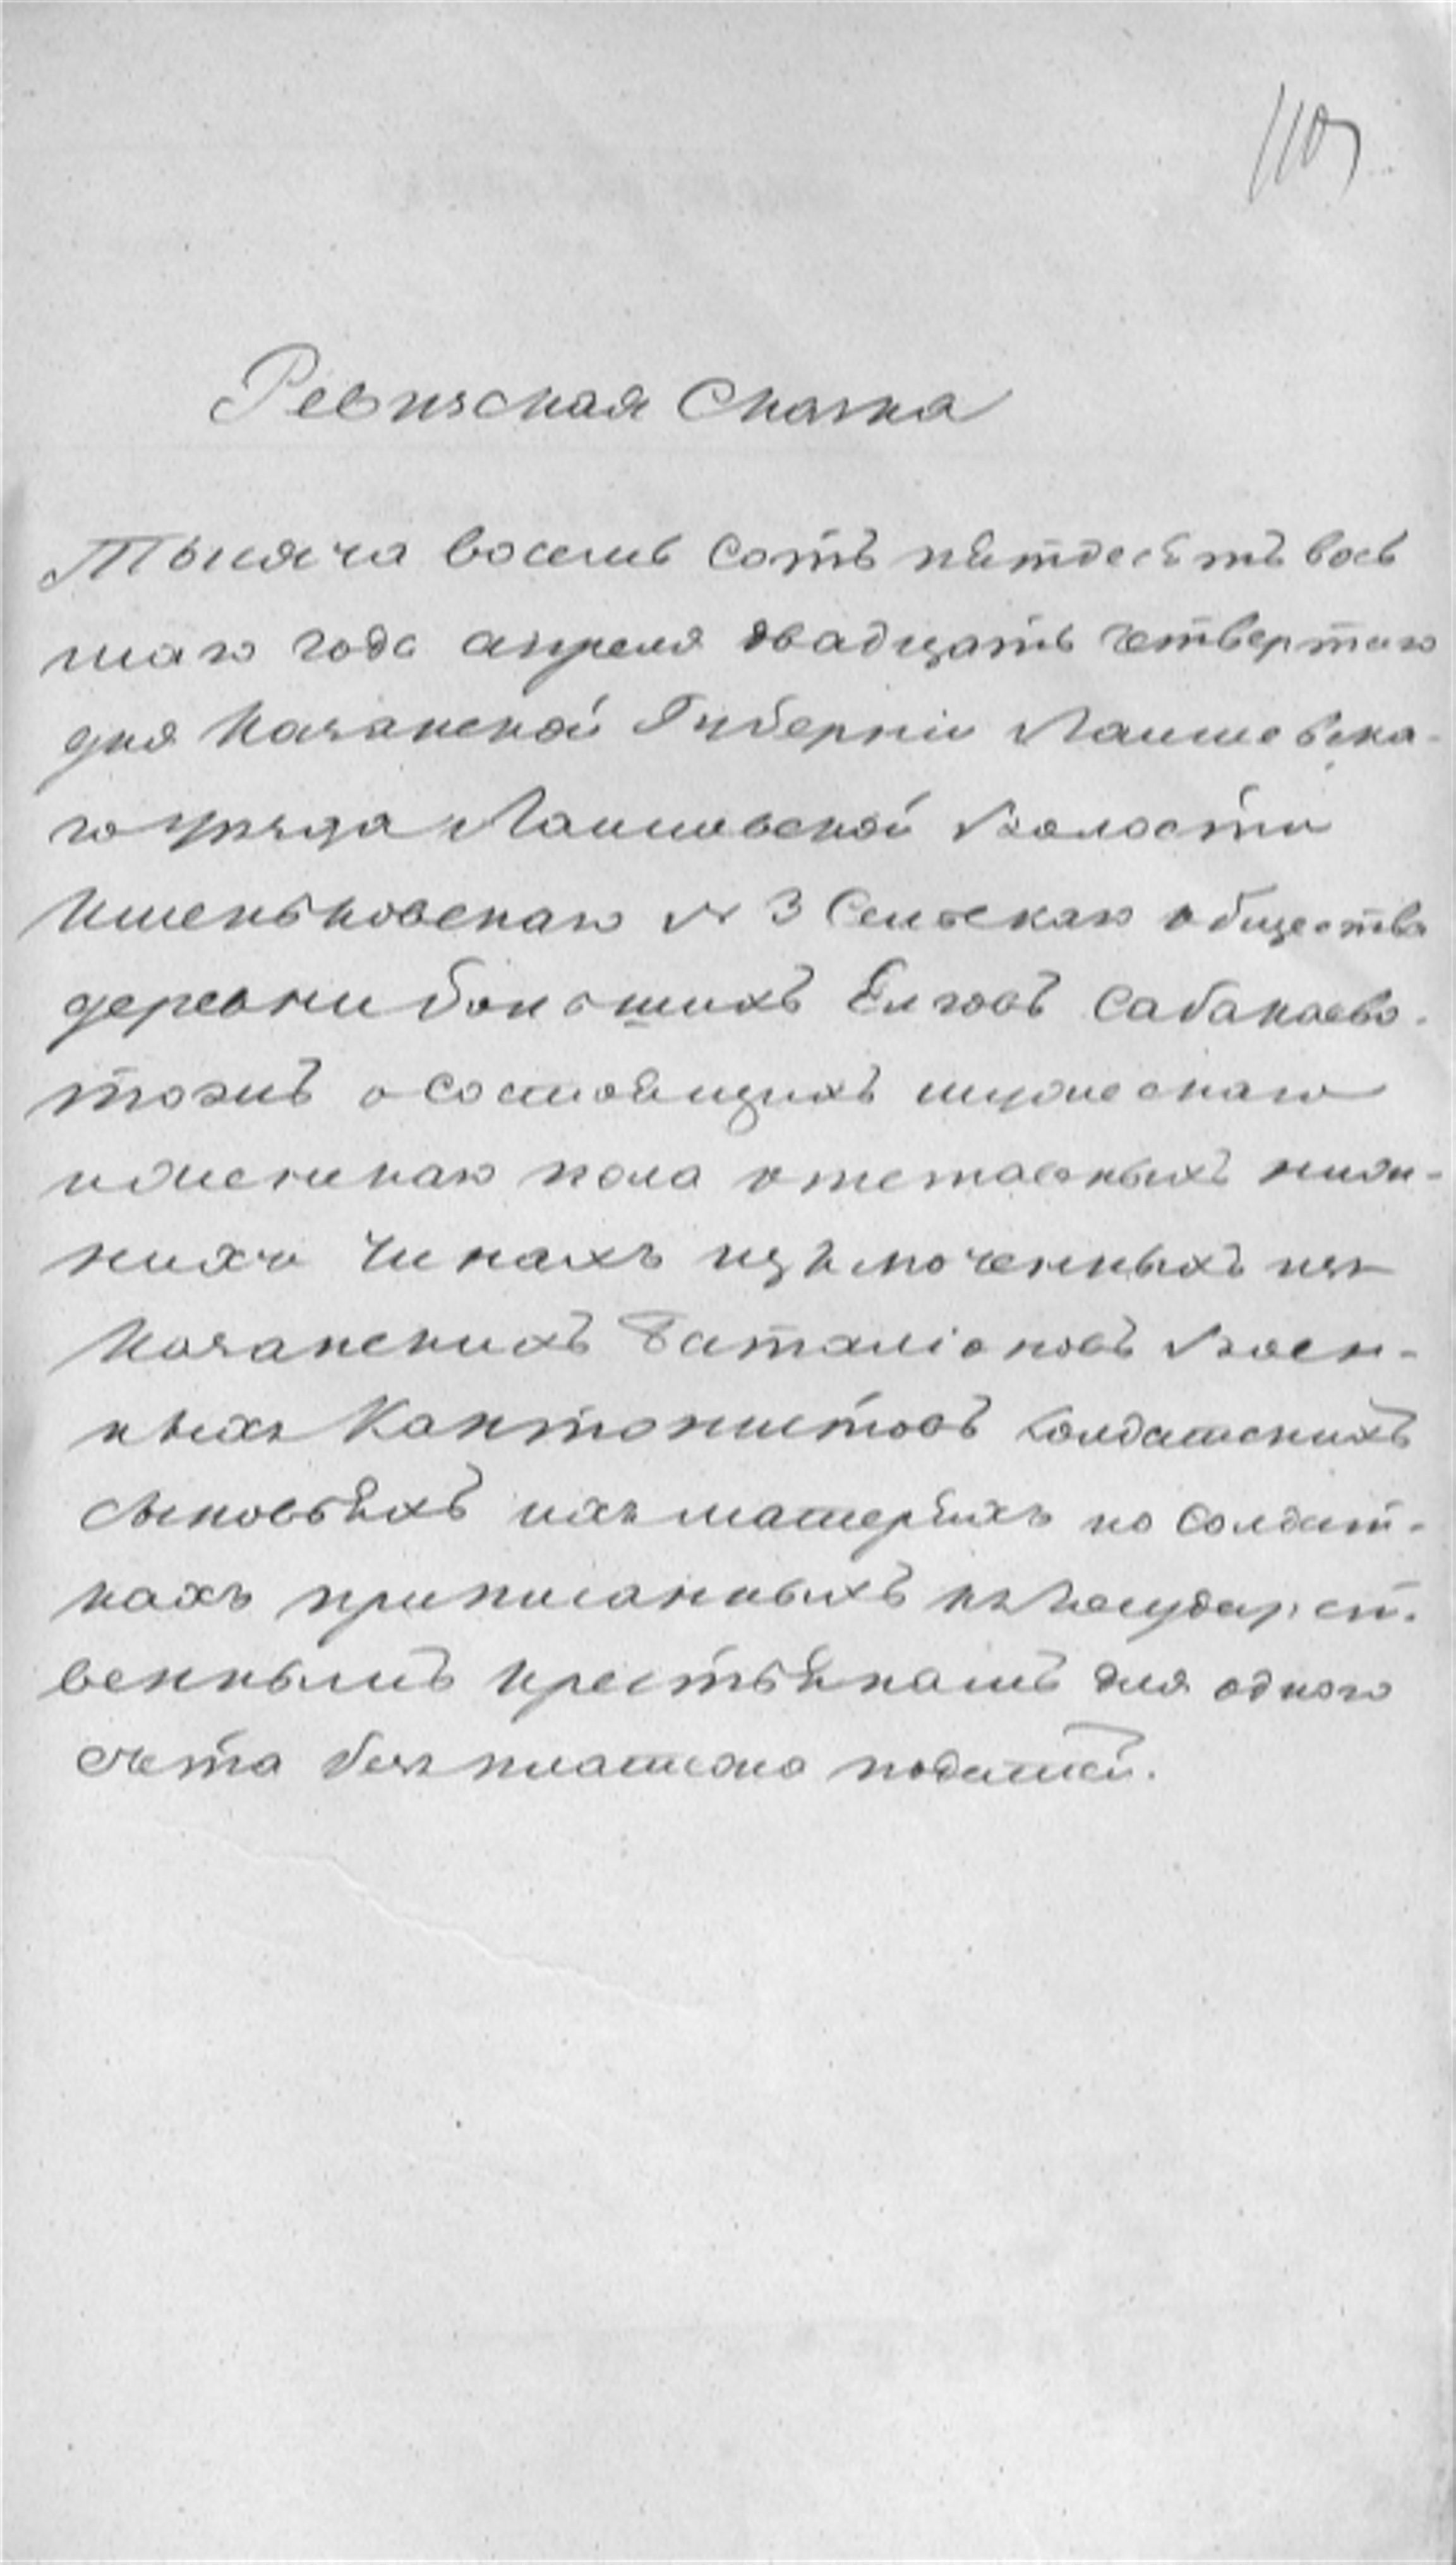 Ревизская Сказка
Тысяча восемь сотъ пятдесятъ вось
маго года апреля двадцать четвертаго
дня Казанской Губерніи Лаишевска-
го уезда Лаишевской Волости
Именьковскаго № 3 Сельскаго общества
деревни большихъ Елговъ Сабакаево
тожъ о состоящихъ мужескаго
и женскаго пола отставныхъ ниж-
нихъ Чинахъ изключенныхъ изъ
Казанскихъ Баталіоновъ Воен-
ныхъ Кантонистовъ Солдатскихъ
сыновьяхъ ихъ матеряхъ по Солдат-
кахъ приписанныхъ къ Государст-
веннымъ Крестьянамъ для одного
счета безъ платежа податей.